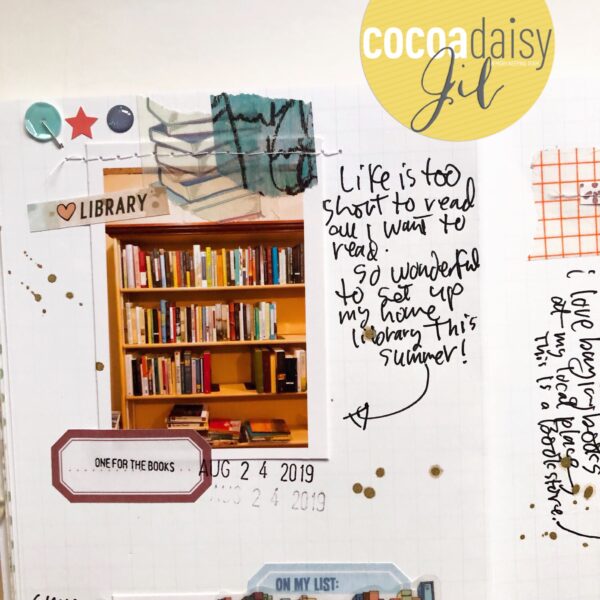 cocoadaisy
Jil
LIBRARY
Life is too
short to read
all I want to
read.
So wonderful
to set up
my home
library This
summer!
ONE FOR THE BOOKS
AUG 24 2019
AUG 24 2019
i love buying books
at my local place
This is a Bookstore!
ON MY LIST: